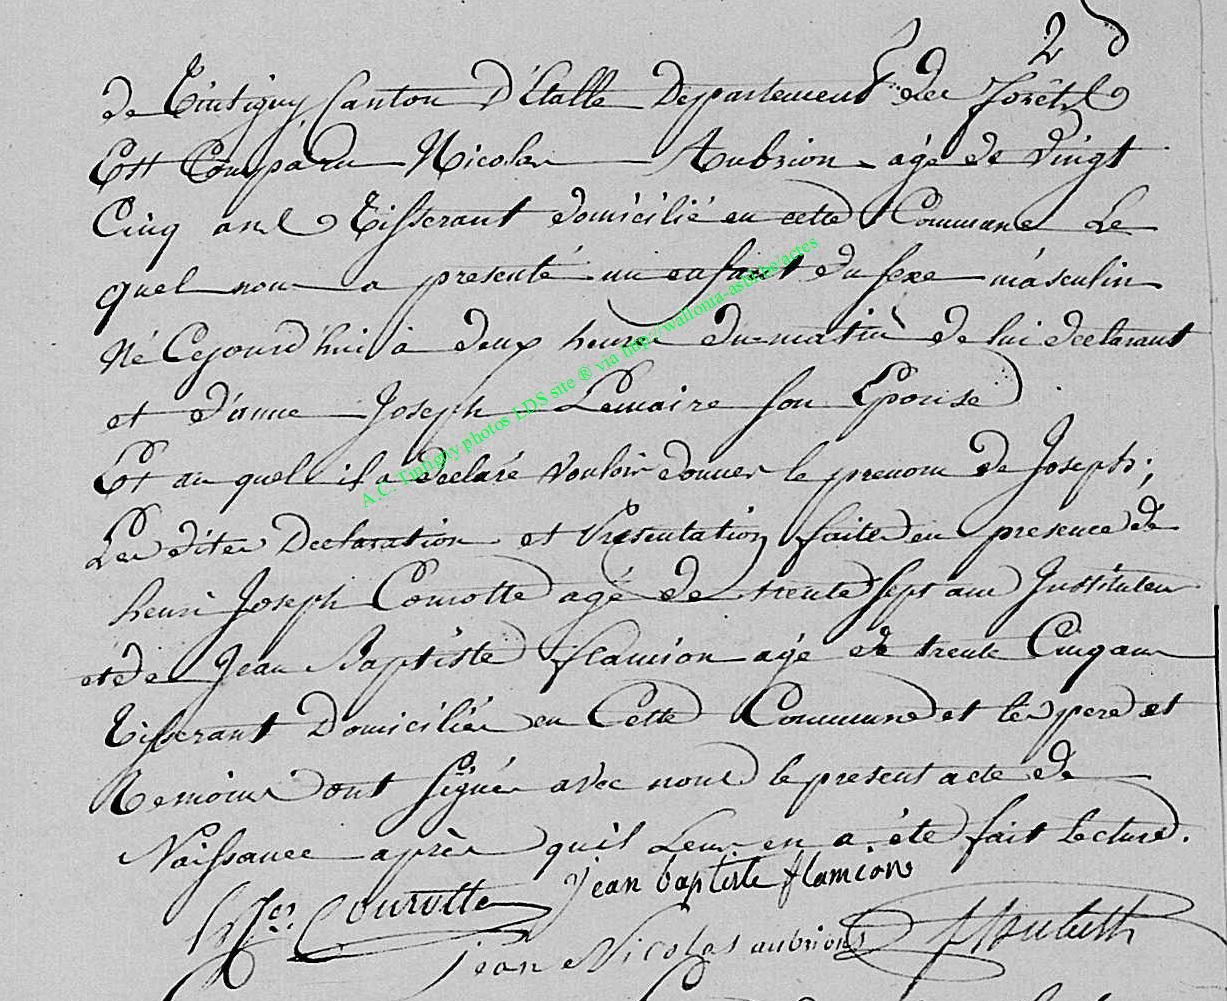 2
de Tintigny Canton D'Etalle Departement des Forêts
Est Comparu Nicolas Aubrion agé de vingt
Cinq ans Tisserant domicilié en cette Commune Le
quel nous a presenté un enfant du sexe masculin
Né Cejourd'hui à deux heures du matin de lui declarant
et d'anne Joseph Lemaire son Epouse
Et au quel il a declaré vouloir donner le prenom de Joseph;
Les dites Declaration et Presentation faites en presence de
henri Joseph Courotte agé de trente sept ans Instituteur
et de Jean Baptiste flamion agé de trente Cinq ans
Tisserant Domiciliés en Cette Commune et les pere et
Temoins ont signés avec nous le present acte de
Naissance après qu'il Leur en a été fait lecture.
Courotte jean baptiste flamion
jean Nicolas aubrion
A.C. Tintigny photos LDS site ® via http://wallonia-asbl.be/actes